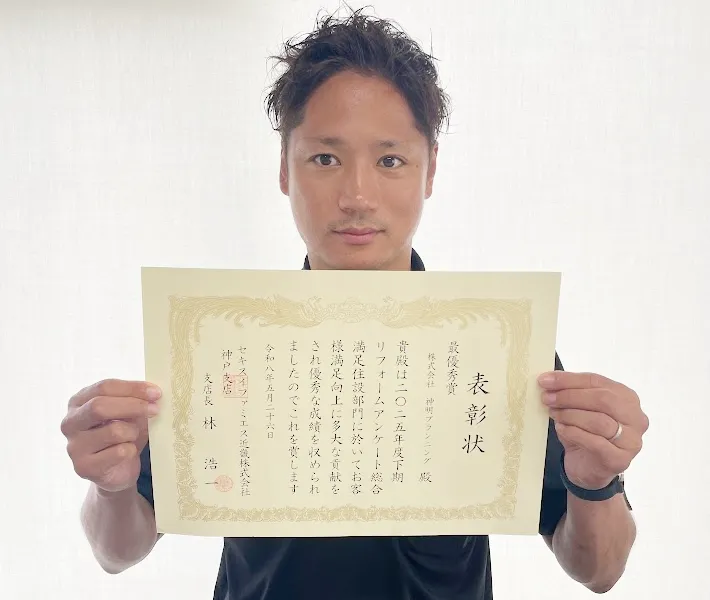 表彰状
最優秀賞
株式会社 神明プランニング 殿
貴殿は二〇二五年度下期
リフォームアンケート総合
満足住設部門に於いてお客
様満足向上に多大な貢献を
され優秀な成績を収められ
ましたのでこれを賞します
令和八年五月二十六日
セキスイファミエス近畿株式会社
神戸支店
支店長 林 浩一